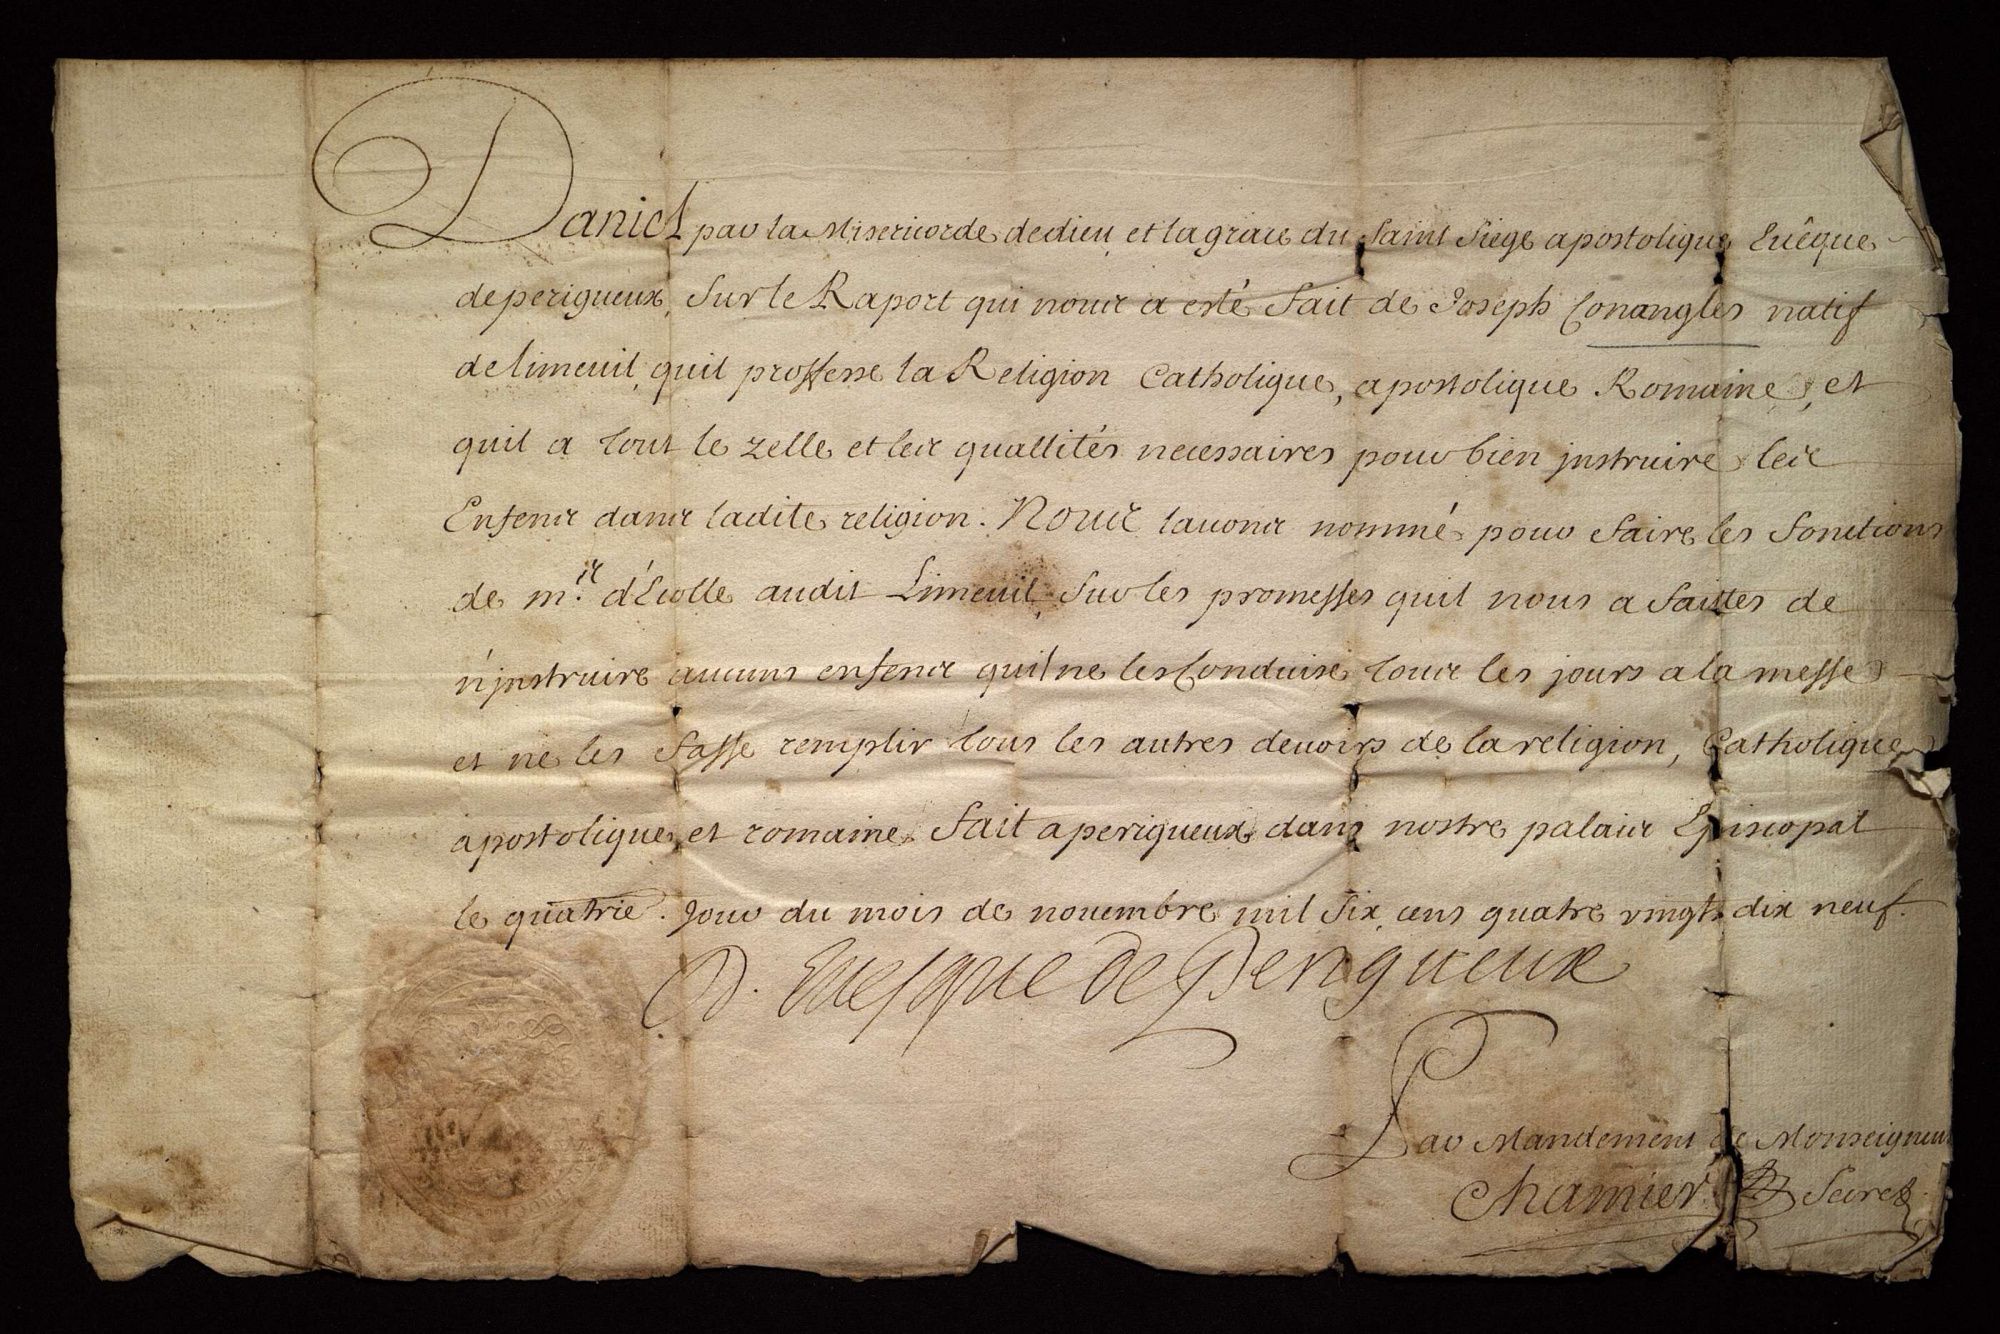 Daniel par la Misericorde de dieu et la grace du Saint Siege apostolique Evêque
de perigueux, Sur le Raport qui nous a esté fait de Joseph Conangles natif
de limeuil, quil proffesse la Religion Catholique, apostolique Romaine, et
quil a tout le zelle et les quallités necessaires pour bien jnstruire les
Enfens dans ladite religion. Nous lavons nommé pour faire les fonctions
de m.re d'Ecolle audit Limeuil, Sur les promesses quil nous a faittes de
n'jnstruire aucuns enfens quil ne les Conduise tous les jours a la messe
et ne les fasse remplir tous les autres devoirs de la religion, Catholique
apostolique, et romaine. fait a perigueux dans nostre palais Episcopal
le quatrie. Jour du mois de novembre mil Six cens quatre vingts dix neuf.
D. Evesque de Perigueux
Par Mandement de Monseigneur
Chamier Secret